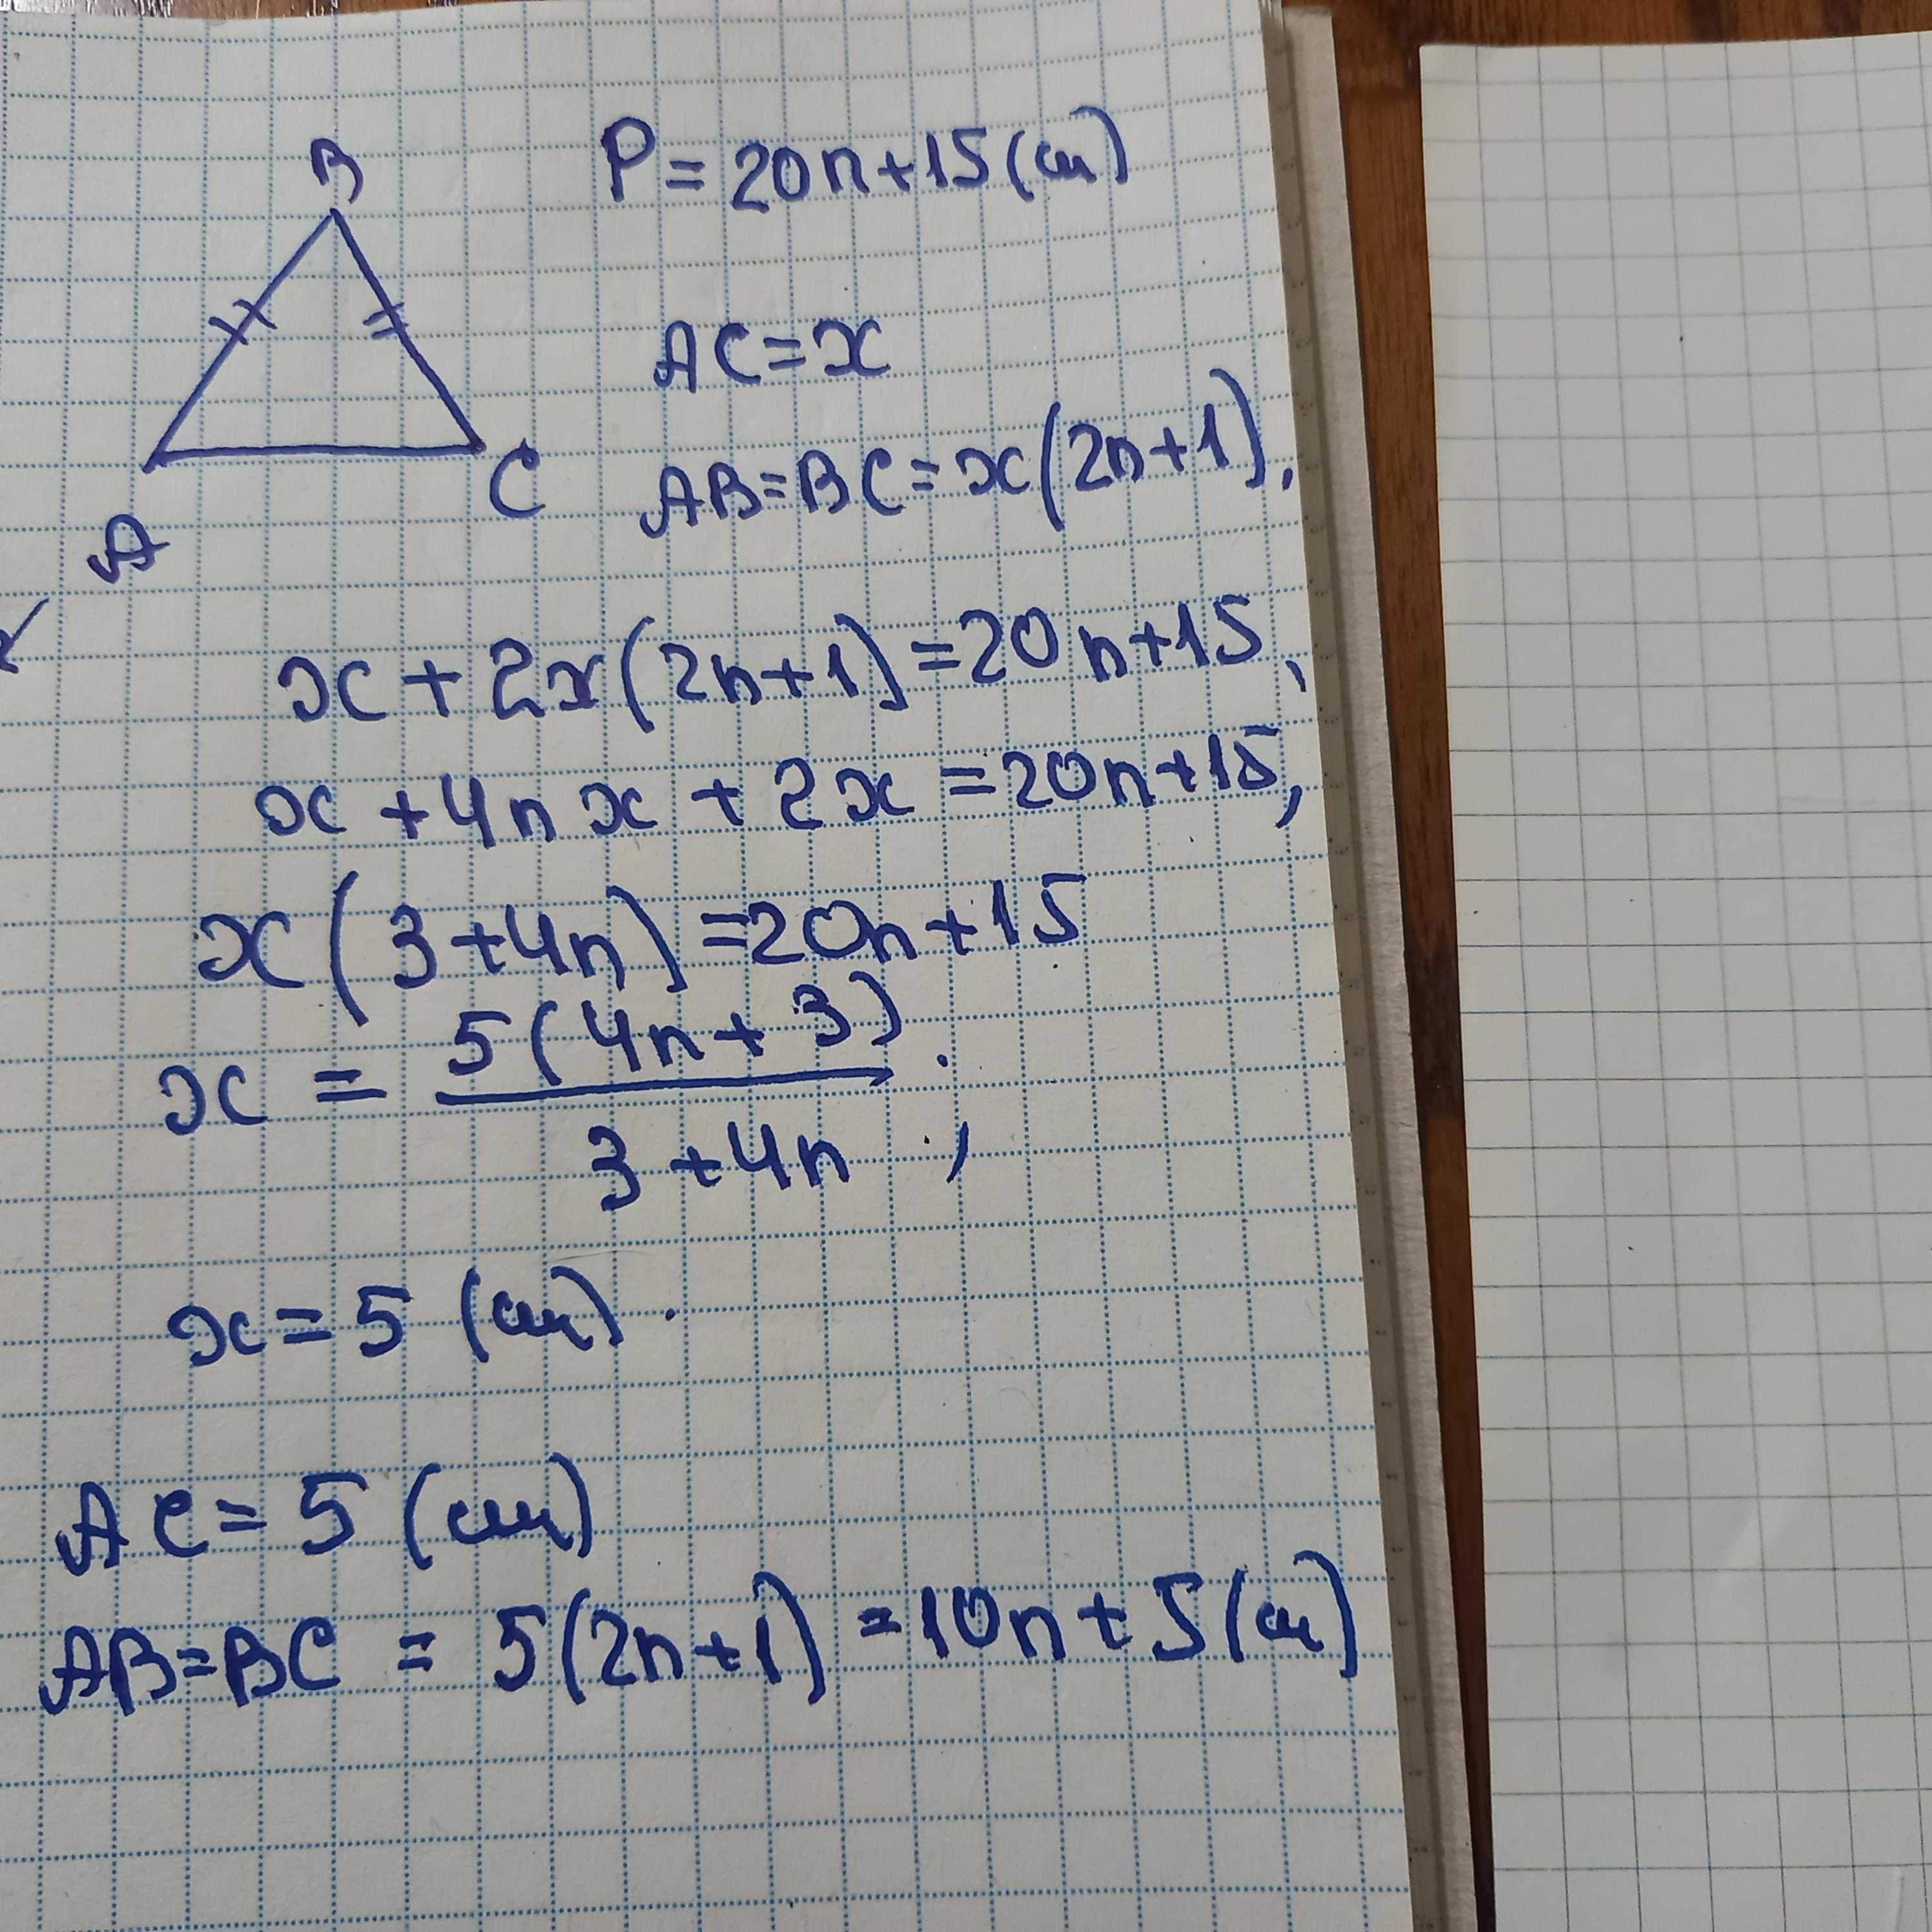 B
P = 20n+15 (см)
AC = x
AB = BC = x(2n+1).
C
A
x + 2x(2n+1) = 20n+15,
x + 4nx + 2x = 20n+15,
x(3+4n) = 20n+15
x = 5(4n+3)/3+4n ;
x = 5 (см).
AC = 5 (см)
AB = BC = 5(2n+1) = 10n+5 (см)